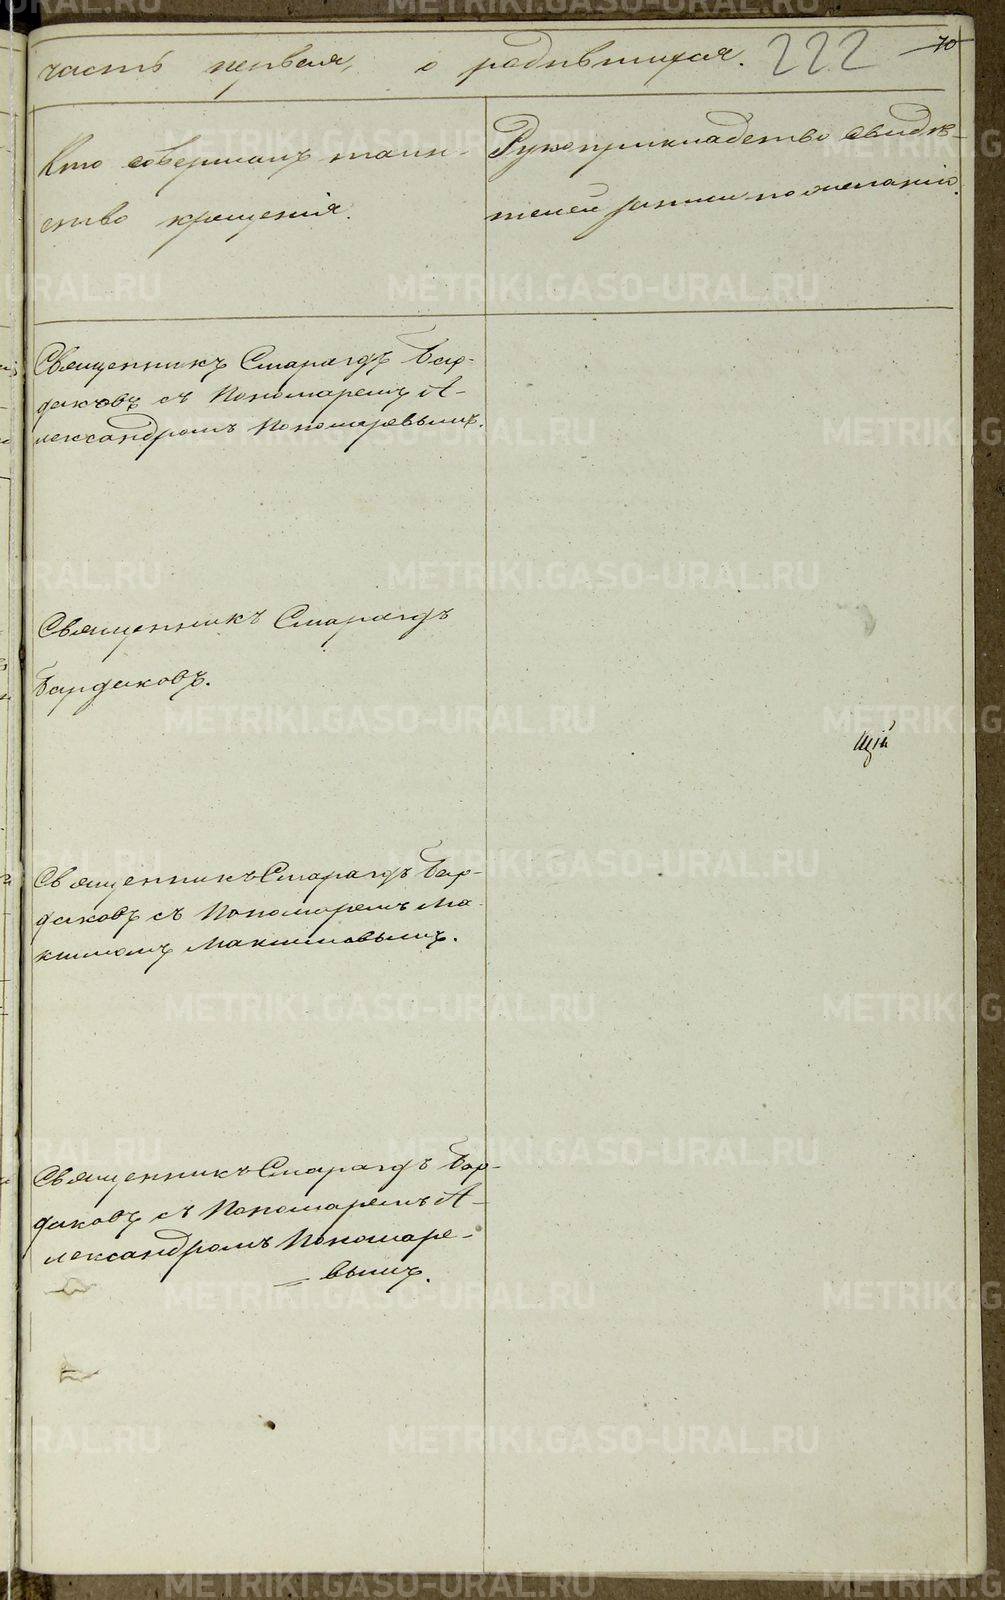 часть первая, о родившихся. 222 70
Кто совершалъ таин-
ство крещенія.
Рукоприкладство свидѣ-
телей записи по желанію.
Священникъ Смарагдъ Бар-
даковъ съ Пономаремъ А-
лександромъ Пономаревымъ.
Священникъ Смарагдъ
Бардаковъ.
щій
Священникъ Смарагдъ Бар-
даковъ съ Пономаремъ Ма-
ксимомъ Максимовымъ.
Священникъ Смарагдъ Бар-
даковъ съ Пономаремъ А-
лександромъ Пономаре-
вымъ.
METRIKI.GASO-URAL.RU